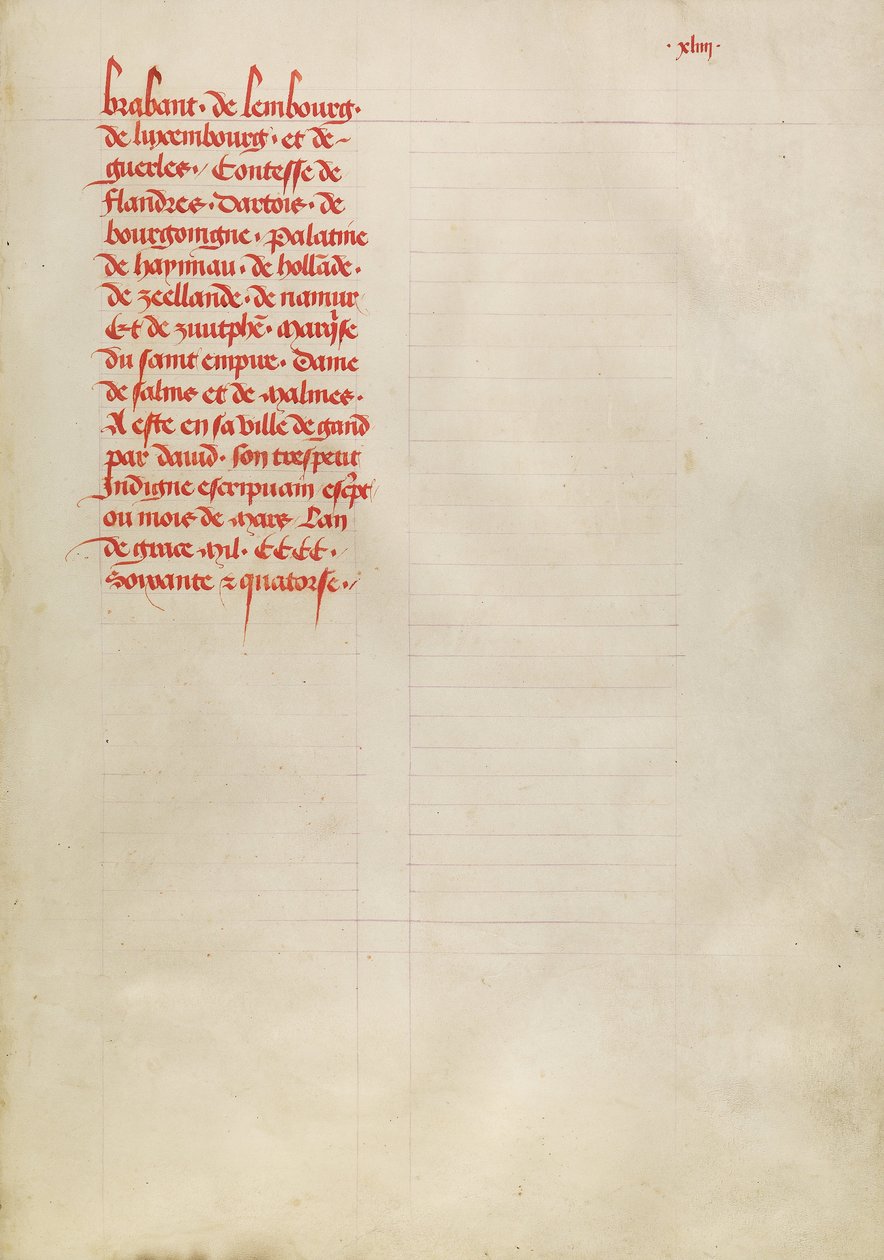 ·xliiij·
brabant · de lembourg ·
de luxembourg · et de-
guerles ·/ Contesse de
flandres · Dartois · de
bourgoingne · palatine
de haynnau · de hollāde ·
de zeellande · de namur
Et de zuutphē · Marq̄se
du saint empire · Dame
de salins et de Malines ·
A este en sa ville de gand
par dauid · son trespetit
Indigne escripuain escpt
ou mois de Mars / Lan
de grace Mil · CCCC · /
Soixante ⁊ quatorse · /